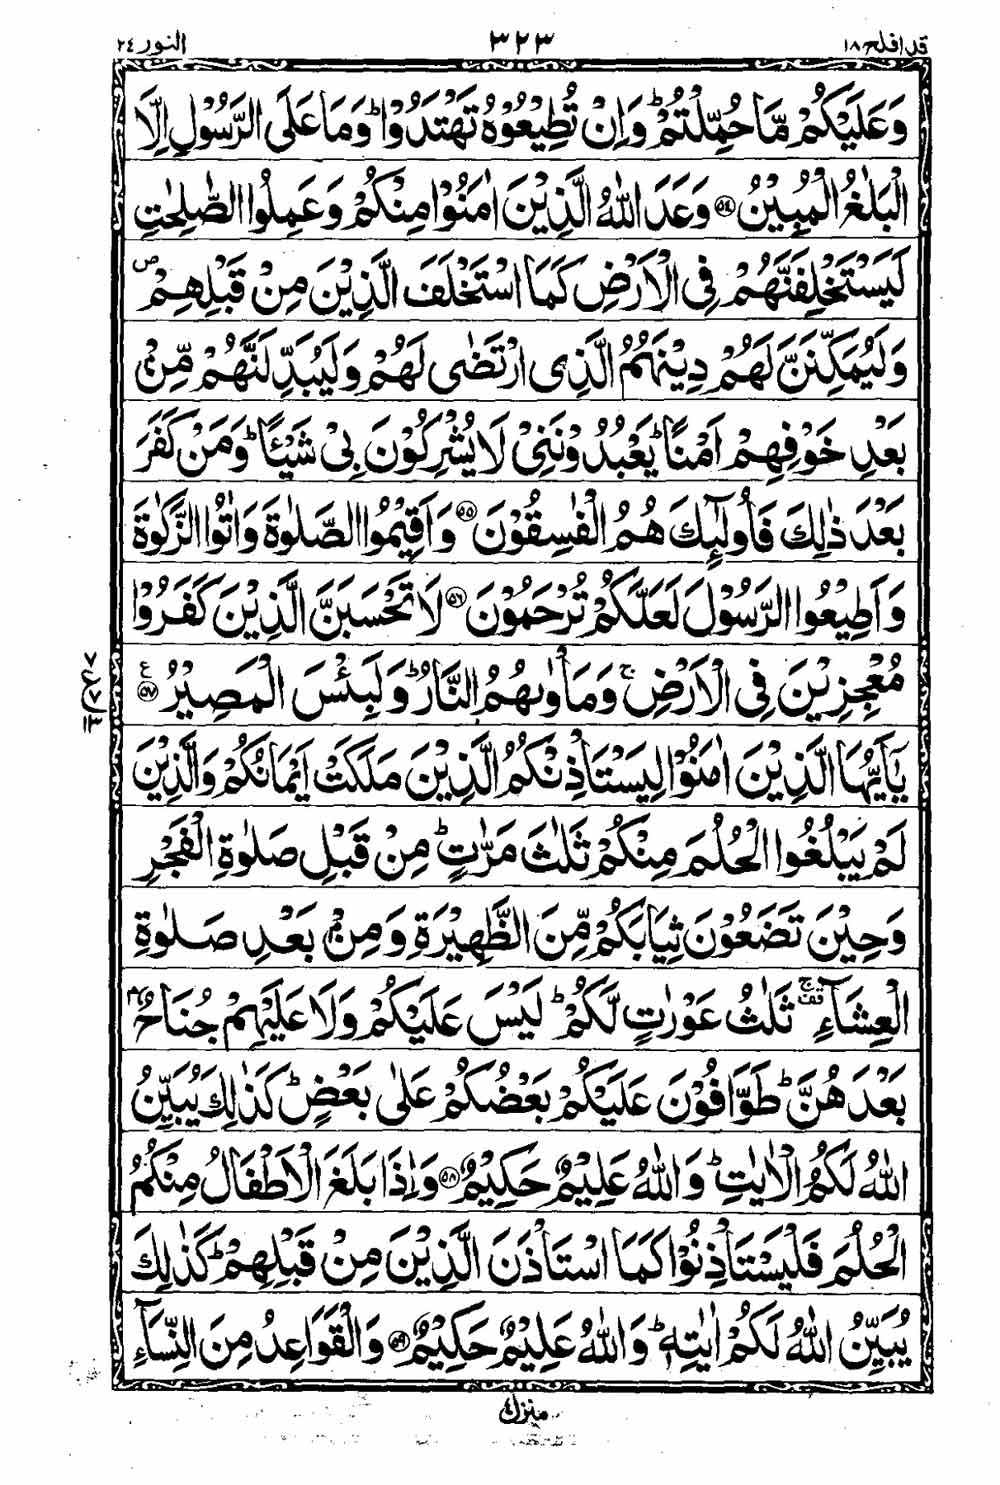 قد افلح ١٨ ٣٢٣ النور ٢٤
وَعَلَيْكُمْ مَّا حُمِّلْتُمْ ؕ وَاِنْ تُطِيْعُوْهُ تَهْتَدُوْا ؕ وَمَا عَلَى الرَّسُوْلِ اِلَّا
الْبَلٰغُ الْمُبِيْنُ ﴿۵۴﴾ وَعَدَ اللّٰهُ الَّذِيْنَ اٰمَنُوْا مِنْكُمْ وَعَمِلُوا الصّٰلِحٰتِ
لَيَسْتَخْلِفَنَّهُمْ فِى الْاَرْضِ كَمَا اسْتَخْلَفَ الَّذِيْنَ مِنْ قَبْلِهِمْ ۪
وَلَيُمَكِّنَنَّ لَهُمْ دِيْنَهُمُ الَّذِى ارْتَضٰى لَهُمْ وَلَيُبَدِّلَنَّهُمْ مِّنْۢ
بَعْدِ خَوْفِهِمْ اَمْنًا ؕ يَعْبُدُوْنَنِىْ لَا يُشْرِكُوْنَ بِىْ شَيْـًٔا ؕ وَمَنْ كَفَرَ
بَعْدَ ذٰلِكَ فَاُولٰٓئِكَ هُمُ الْفٰسِقُوْنَ ﴿۵۵﴾ وَاَقِيْمُوا الصَّلٰوةَ وَاٰتُوا الزَّكٰوةَ
وَاَطِيْعُوا الرَّسُوْلَ لَعَلَّكُمْ تُرْحَمُوْنَ ﴿۵۶﴾ لَا تَحْسَبَنَّ الَّذِيْنَ كَفَرُوْا
مُعْجِزِيْنَ فِى الْاَرْضِ ۚ وَمَاْوٰىهُمُ النَّارُ ؕ وَلَبِئْسَ الْمَصِيْرُ ﴿۵۷﴾ ع
يٰۤاَيُّهَا الَّذِيْنَ اٰمَنُوْا لِيَسْتَاْذِنْكُمُ الَّذِيْنَ مَلَكَتْ اَيْمَانُكُمْ وَالَّذِيْنَ
لَمْ يَبْلُغُوا الْحُلُمَ مِنْكُمْ ثَلٰثَ مَرّٰتٍ ؕ مِنْ قَبْلِ صَلٰوةِ الْفَجْرِ
وَحِيْنَ تَضَعُوْنَ ثِيَابَكُمْ مِّنَ الظَّهِيْرَةِ وَمِنْۢ بَعْدِ صَلٰوةِ
الْعِشَآءِ ۚ قف ثَلٰثُ عَوْرٰتٍ لَّكُمْ ؕ لَيْسَ عَلَيْكُمْ وَلَا عَلَيْهِمْ جُنَاحٌۢ
بَعْدَهُنَّ ؕ طَوّٰفُوْنَ عَلَيْكُمْ بَعْضُكُمْ عَلٰى بَعْضٍ ؕ كَذٰلِكَ يُبَيِّنُ
اللّٰهُ لَكُمُ الْاٰيٰتِ ؕ وَاللّٰهُ عَلِيْمٌ حَكِيْمٌ ﴿۵۸﴾ وَاِذَا بَلَغَ الْاَطْفَالُ مِنْكُمُ
الْحُلُمَ فَلْيَسْتَاْذِنُوْا كَمَا اسْتَاْذَنَ الَّذِيْنَ مِنْ قَبْلِهِمْ ؕ كَذٰلِكَ
يُبَيِّنُ اللّٰهُ لَكُمْ اٰيٰتِهٖ ؕ وَاللّٰهُ عَلِيْمٌ حَكِيْمٌ ﴿۵۹﴾ وَالْقَوَاعِدُ مِنَ النِّسَآءِ
منزل ٤